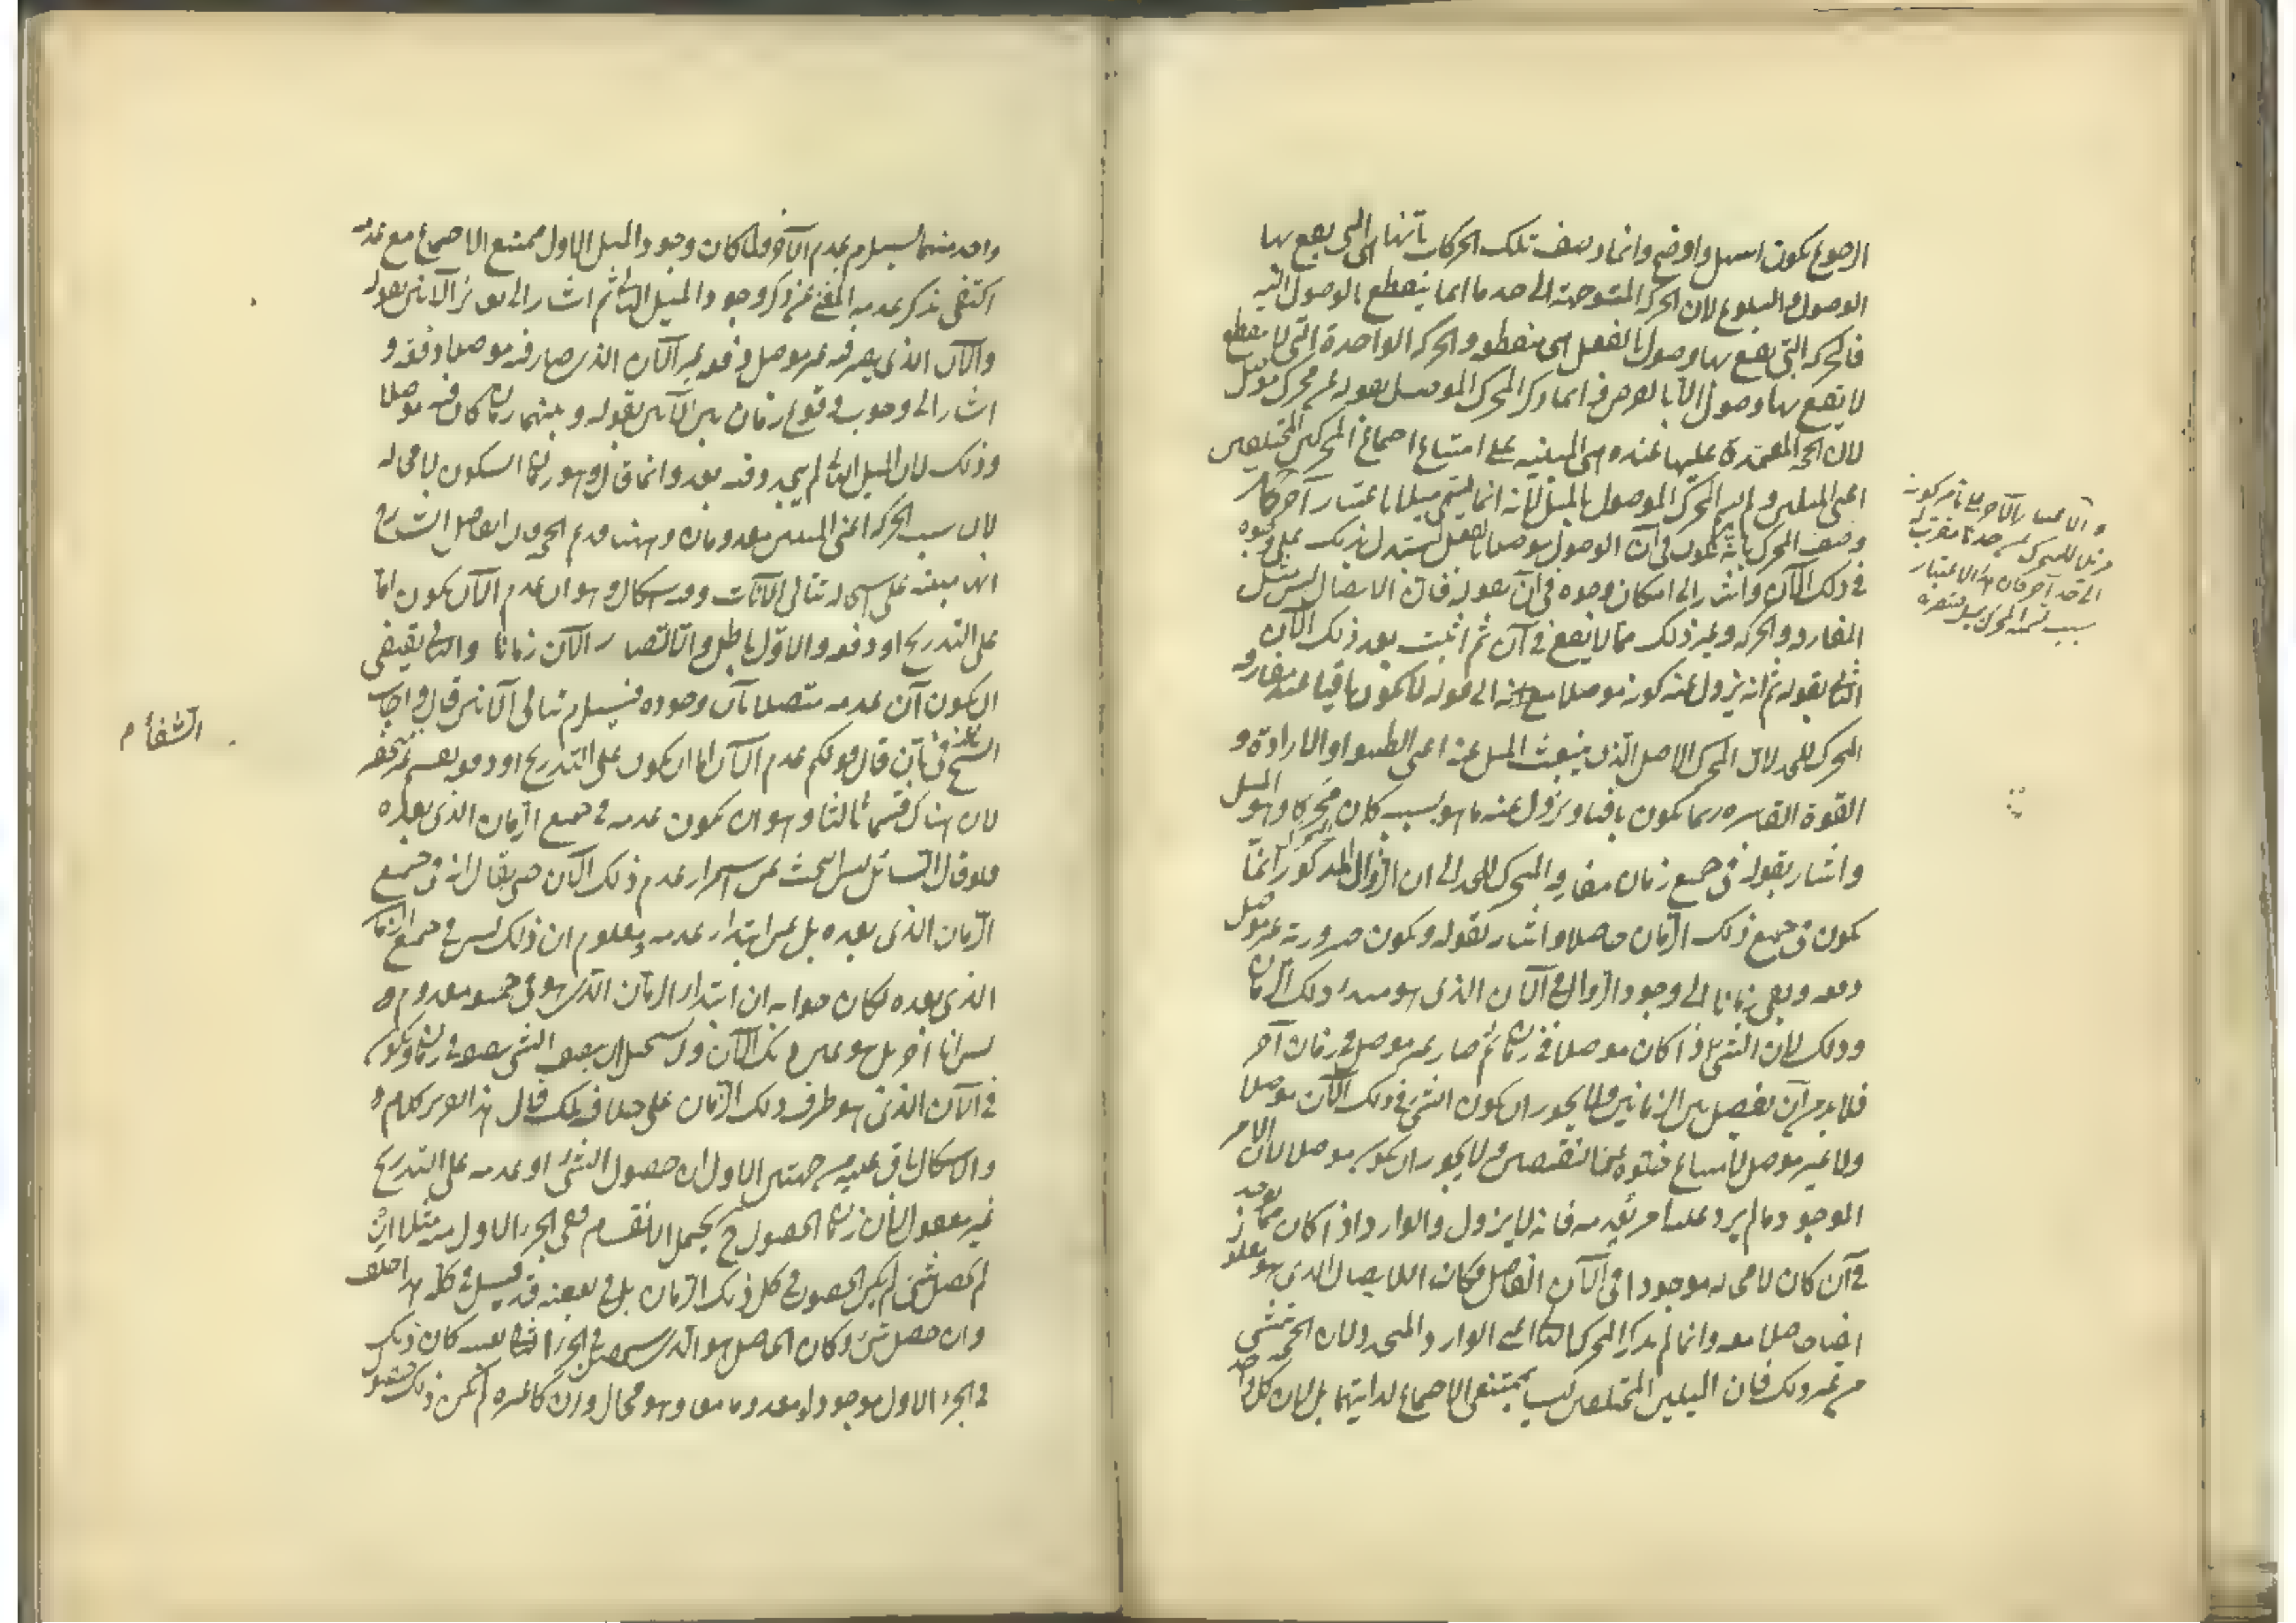 الرجوع يكون اسهل واوضح وانما وصف تلك الحركات بانها هى التى يقع بها
الوصول والبلوغ لان الحركة المتوجهة الى حد ما انما ينقطع بالوصول اليه
فالحركة التى يقع بها وصول بالفعل هى منقطعة والحركة الواحدة التى لا ينقطع
لا يقع بها وصول الا بالعرض وانما ذكر المحرك الموصل بقوله عن محرك موصل
لان الحجة المعتمدة عليها عنده هى المبنية على امتناع اجتماع المحركين المختلفين
اعنى الميلين ولم يسم المحرك الموصول بالميل لانه انما يسمى ميلا باعتبار آخر
وصف المحرك بانه يكون فى آن الوصول موصلا بالفعل ليستدل بذلك على وجوده
فى ذلك الآن واشار الى امكان وجوده فى آن بقوله فان الايصال ليس مثل
المفارقة والحركة وغير ذلك مما لا يقع فى آن ثم اثبت بعد ذلك الآن
الثانى بقوله ثم انه يزول عنه كونه موصلا مع الى قوله لا يكون باقيا عند مفارقة
المتحرك للحد لان المحرك الاصل الذى ينبعث الميل عنه اعنى الطبيعة او الارادة و
القوة القاسرة ربما يكون باقيا ويزول عنه ما هو بسببه كان محركا وهو الميل
واشار بقوله فى جميع زمان مفارقة المتحرك للحد الى ان الزوال المذكور انما
يكون فى جميع ذلك الزمان حاصلا واشار بقوله ويكون صيرورته غير موصل
دفعة وبقى زمانا الى وجود الزوال فى الآن الذى هو مبدء ذلك الزمان
وذلك لان الشئ اذا كان موصلا فى زمان ثم صار غير موصل فى زمان آخر
فلا بد من آن يفصل بين الزمانين ولا يجوز ان يكون الشئ فى ذلك الآن موصلا
ولا غير موصل لامتناع خلوه عن النقيضين ولا يجوز ان يكون موصلا لان الامر
الموجود ما لم يرد عليه امر يعدمه فانه لا يزول والوارد اذا كان مما يوجد
فى آن كان لا محالة موجودا فى الآن الفاصل فكان اللاايصال الذى هو معلوله
ايضا حاصلا معه وانما لم يذكر المحرك الثانى اعنى الوارد المتجدد لان الحجة تتمشى
من غير ذلك فان الميلين المختلفين ليسا بممتنعى الاجتماع لذاتيهما بل لان كل واحد
الى حد آخر كان هذا الاعتبار
واحد منهما يستلزم عدم الآخر ولما كان وجود الميل الاول ممتنع الاجتماع مع عدمه
اكتفى بذكر عدمه المغنى عن ذكر وجود الميل الثانى ثم اشار الى تغاير الآنين بقوله
والآن الذى يصير فيه غير موصل دفعة غير الآن الذى صار فيه موصلا دفعة و
اشار الى وجوب وقوع زمان بين الآنين بقوله وبينهما زمان كان فيه موصلا
وذلك لان الميل الثانى لم يوجد فيه بعد وانما قال وهو زمان السكون لا محالة
لان سبب الحركة اعنى الميلين معدومان وههنا قد تم الحجة قال الفاضل الشارح
انها مبنية على استحالة تتالى الآنات وفيه اشكال وهو ان عدم الآن يكون اما
على التدريج او دفعة والاول باطل والا لصار الآن زمانا والثانى يقتضى
ان يكون آن عدمه متصلا بآن وجوده فيستلزم تتالى الآنين قال واجاب
الشيخ عنه فى الشفاء بان قال قولكم عدم الآن اما ان يكون على التدريج او دفعة تقسيم غير منحصر
لان هناك قسما ثالثا وهو ان يكون عدمه فى جميع الزمان الذى بعده
فلو قال السائل ليس البحث عن استمرار عدم ذلك الآن حتى يقال انه فى جميع
الزمان الذى بعده بل عن ابتداء عدمه ومعلوم ان ذلك ليس فى جميع الزمان
الذى بعده لكان جوابه ان ابتداء الزمان الذى هو فى جميعه معدوم و
ليس آنا آخر بل هو عين ذلك الآن ولا يستحيل ان يتصف الشئ بصفة فى زمان ويكون
فى الآن الذى هو طرف ذلك الزمان على خلاف ذلك قال هذا تقرير كلامه
والاشكال باق عليه من جهتين الاول ان حصول الشئ او عدمه على التدريج
غير معقول لان زمان الحصول يحتمل الانقسام ففى الجزء الاول منه مثلا ان
لم يحصل شئ لم يكن الحصول فى كل ذلك الزمان بل فى بعضه قد قيل فى كله هذا خلف
وان حصل شئ وكان الحاصل هو الذى سيحصل فى الجزء الثانى بعينه كان ذلك
فى الجزء الاول موجودا ومعدوما معا وهو محال وان كان غيره لم يكن ذلك حصول
الشفاء م